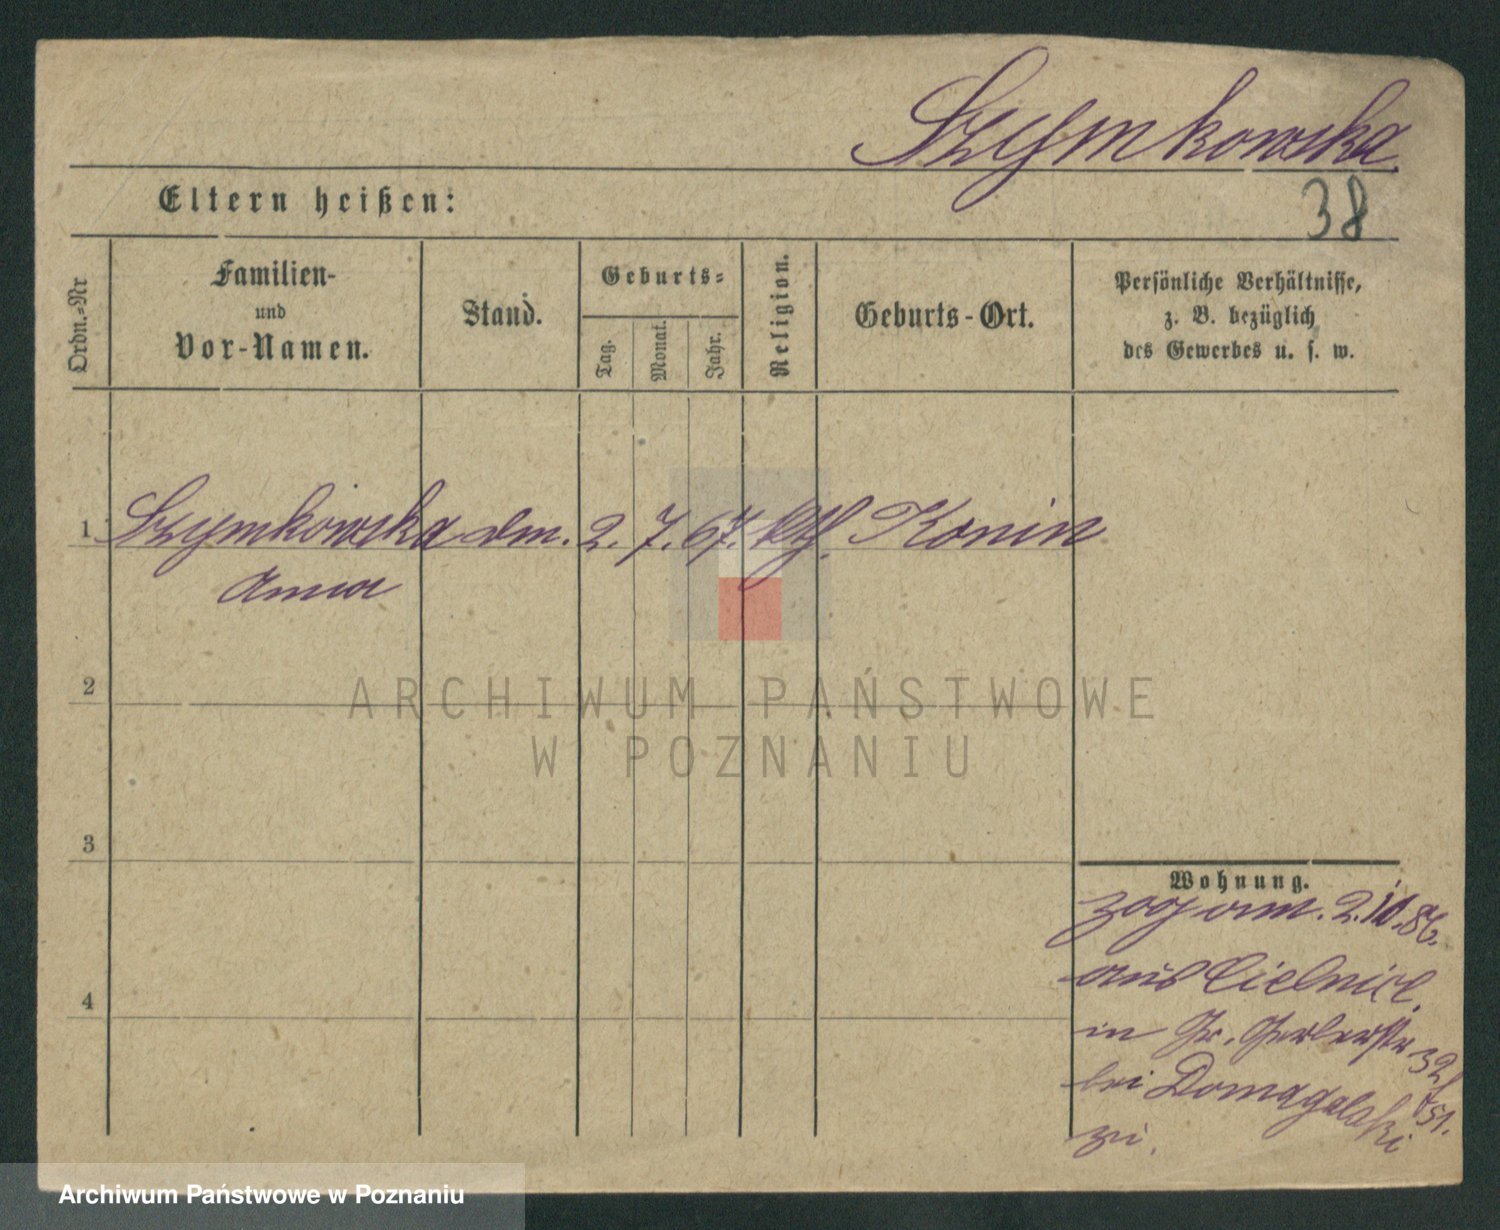 Szymkowska
38
Eltern heißen:
Ordn.-Nr
Familien-
und
Vor-Namen.
Stand.
Geburts-
Tag.
Monat.
Jahr.
Religion.
Geburts-Ort.
Persönliche Verhältnisse,
z. B. bezüglich
des Gewerbes u. s. w.
1 Szymkowska dm. 2. 7. 67. kth. Konin
Anna
2
3
4
Wohnung.
zog am. 2.10.86.
aus Cielnice.
in Gr. Gerberstr 32/51.
bei Domagalski
zu.
ARCHIWUM PAŃSTWOWE
W POZNANIU
Archiwum Państwowe w Poznaniu